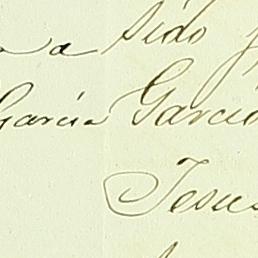 a sido
García García
Jesus